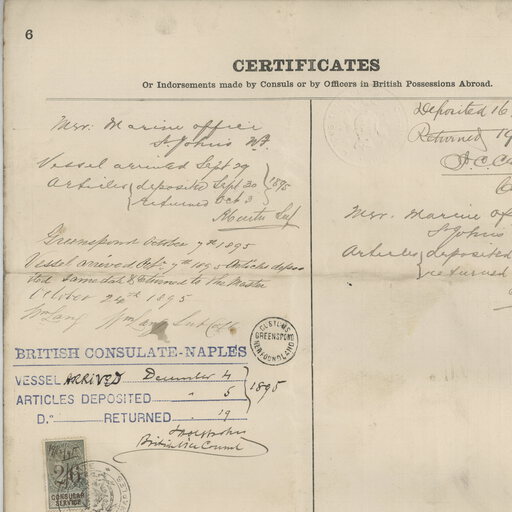 6
CERTIFICATES
Or Indorsements made by Consuls or by Officers in British Possessions Abroad.
Mer: Marine office
St Johns NF.
Vessel arrived Sept 29
Articles deposited Sept 30 1895
returned Oct 3
Greenspond October 7th 1895
Vessel arrived Oct 7th 1895 Articles depos-
ited same date & returned to the Master
October 24th 1895
Wm Lang Wm Lang Sub Coll
CUSTOMS
GREENSPOND
NEWFOUNDLAND
BRITISH CONSULATE-NAPLES
VESSEL ARRIVED December 4
ARTICLES DEPOSITED " 5 1895
D.o RETURNED " 19
British Vice Consul
2/6
CONSULAR
SERVICE
Deposited 16
Returned 19
Mer. Marine of
St Johns
Articles deposited
returned